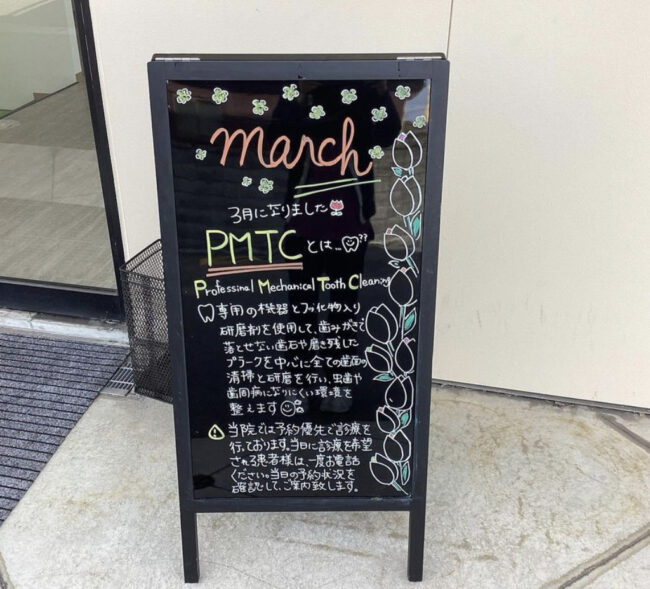 march
3月になりました
PMTC とは…??
Professinal Mechanical Tooth Cleaning
専用の機器とフッ化物入り
研磨剤を使用して、歯みがきで
落とせない歯石や磨き残した
プラークを中心に全ての歯面の
清掃と研磨を行い、虫歯や
歯周病になりにくい環境を
整えます
当院では予約優先で診療を
行っております。当日に診療を希望
される患者様は、一度お電話
ください。当日の予約状況を
確認して、ご案内致します。